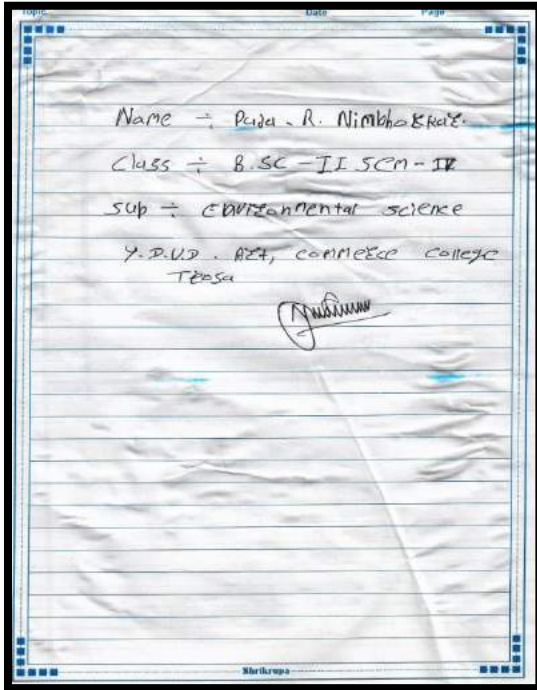 Topic Date Page
Name ÷ Puja . R. Nimbhokkar.
Class ÷ B.SC - II SEM - IV
Sub ÷ Environmental science
Y.D.V.D. Art, commerce college
Teosa
Shrikrupa